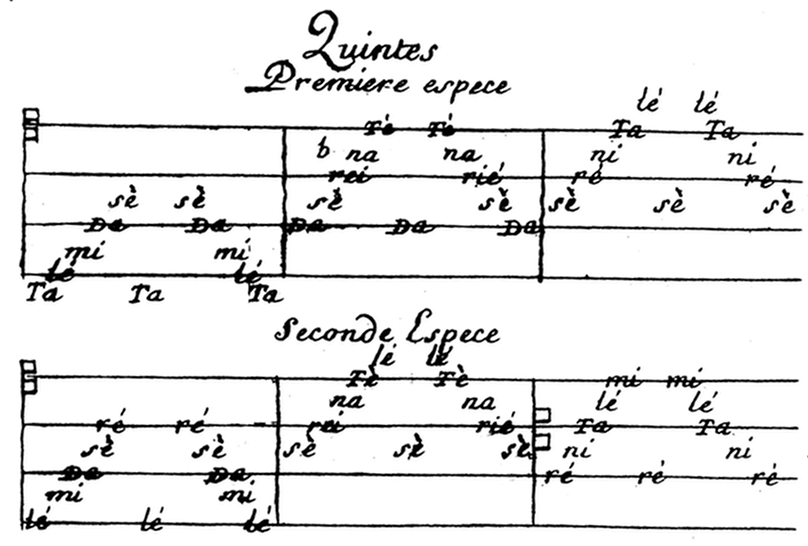 Quintes
Premiere espece
lé lé
Té Té Ta Ta
b na na ni ni
rei rié ré ré
sè sè sè sè sè sè sè
Da Da Da Da Da
mi mi
lé lé
Ta Ta Ta
Seconde Espece
lé lé
Tè Tè mi mi
na na lé lé
ré ré rei rié Ta Ta
sè sè sè sè sè ni ni
Da Da ré ré ré
mi mi
lé lé lé